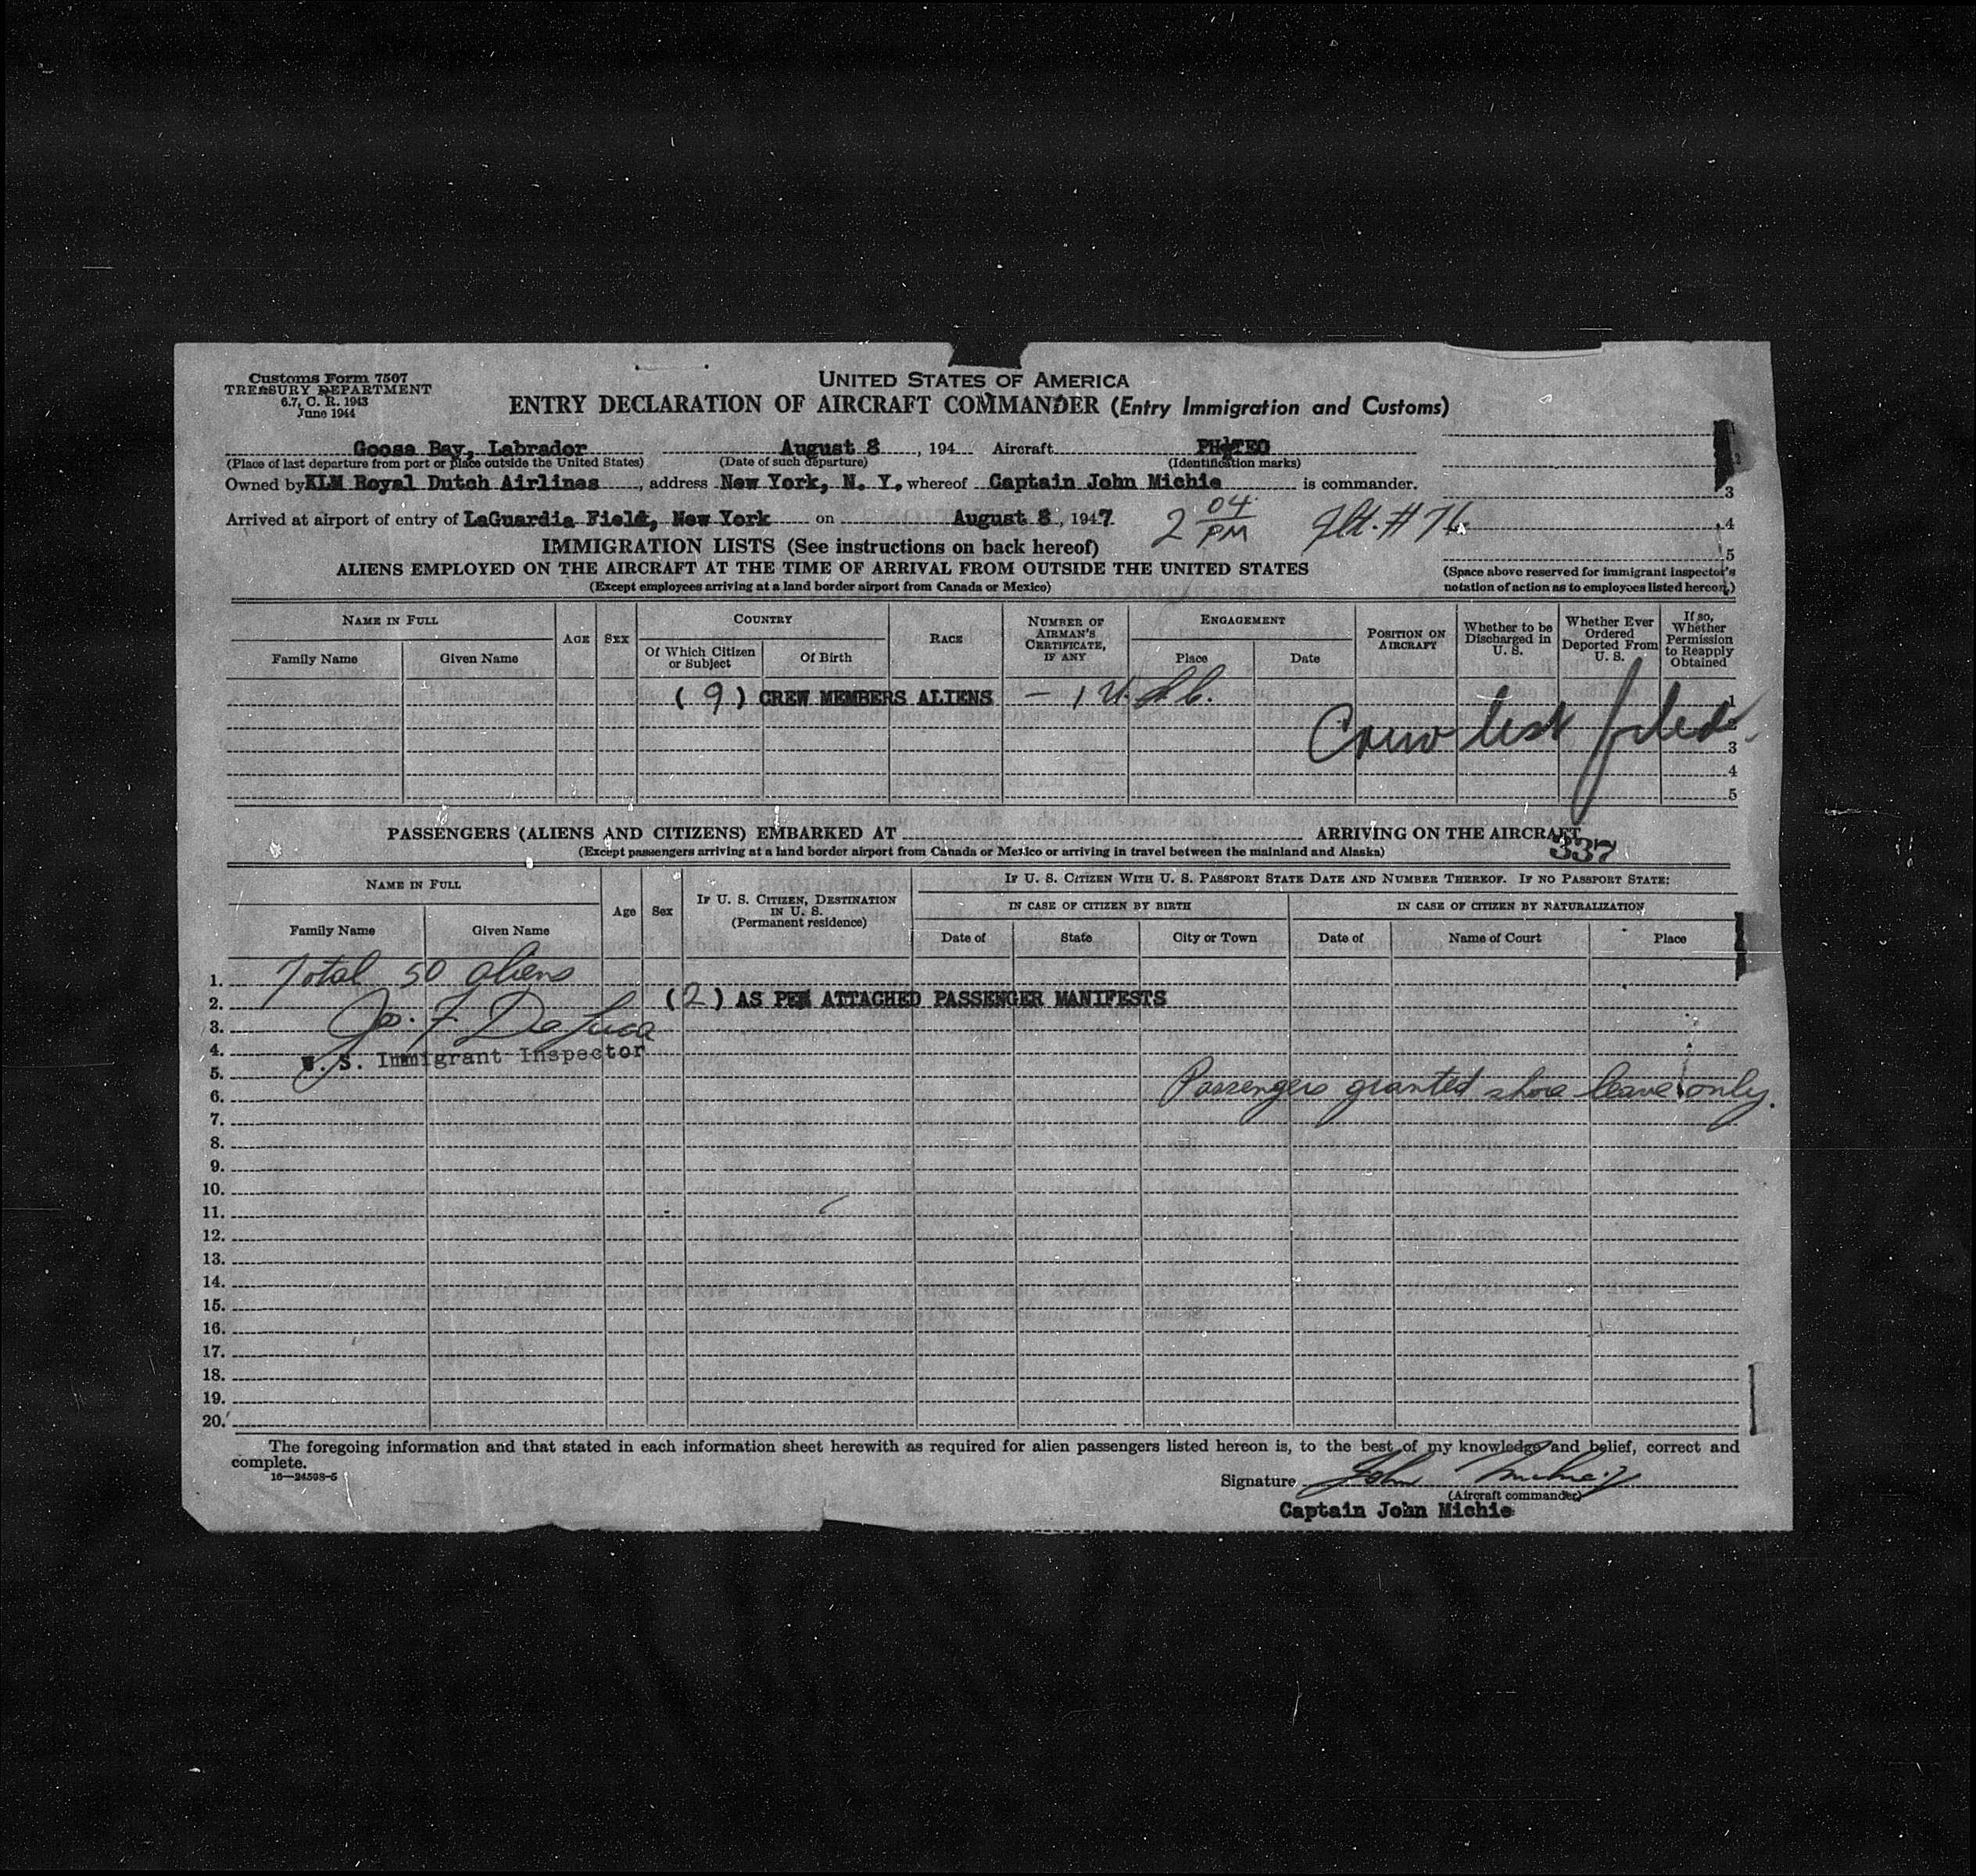 Customs Form 7507
TREASURY DEPARTMENT
6.7, C. R. 1943
June 1944
UNITED STATES OF AMERICA
ENTRY DECLARATION OF AIRCRAFT COMMANDER (Entry Immigration and Customs)
Goose Bay, Labrador August 8, 194 Aircraft
(Place of last departure from port or place outside the United States) (Date of such departure) (Identification marks)
Owned by KLM Royal Dutch Airlines, address New York, N. Y., whereof Captain John Michie is commander.
Arrived at airport of entry of LaGuardia Field, New York on August 8, 1947. 2 04 PM Flt. # 76
1
2
3
4
5
IMMIGRATION LISTS (See instructions on back hereof)
ALIENS EMPLOYED ON THE AIRCRAFT AT THE TIME OF ARRIVAL FROM OUTSIDE THE UNITED STATES
(Except employees arriving at a land border airport from Canada or Mexico)
(Space above reserved for immigrant inspector's
notation of action as to employees listed hereon.)
NAME IN FULL
Family Name
Given Name
AGE
SEX
COUNTRY
Of Which Citizen or Subject
Of Birth
RACE
NUMBER OF AIRMAN'S CERTIFICATE, IF ANY
ENGAGEMENT
Place
Date
POSITION ON AIRCRAFT
Whether to be Discharged in U. S.
Whether Ever Ordered Deported From U. S.
If so, Whether Permission to Reapply Obtained
( 9 ) CREW MEMBERS ALIENS — 1 1
Crew list filed 2
3
4
5
PASSENGERS (ALIENS AND CITIZENS) EMBARKED AT ARRIVING ON THE AIRCRAFT
(Except passengers arriving at a land border airport from Canada or Mexico or arriving in travel between the mainland and Alaska)
337
NAME IN FULL
Family Name
Given Name
Age
Sex
IF U. S. CITIZEN, DESTINATION IN U. S.
(Permanent residence)
IF U. S. CITIZEN WITH U. S. PASSPORT STATE DATE AND NUMBER THEREOF. IF NO PASSPORT STATE:
IN CASE OF CITIZEN BY BIRTH
Date of
State
City or Town
IN CASE OF CITIZEN BY NATURALIZATION
Date of
Name of Court
Place
1. Total 50 aliens
2. (2) AS PER ATTACHED PASSENGER MANIFESTS
3. Jos. F. DeLuca
4. U. S. Immigrant Inspector
5.
6. Passengers granted shore leave only.
7.
8.
9.
10.
11.
12.
13.
14.
15.
16.
17.
18.
19.
20.
The foregoing information and that stated in each information sheet herewith as required for alien passengers listed hereon is, to the best of my knowledge and belief, correct and
complete.
16—24598-5
Signature John Michie
(Aircraft commander)
Captain John Michie